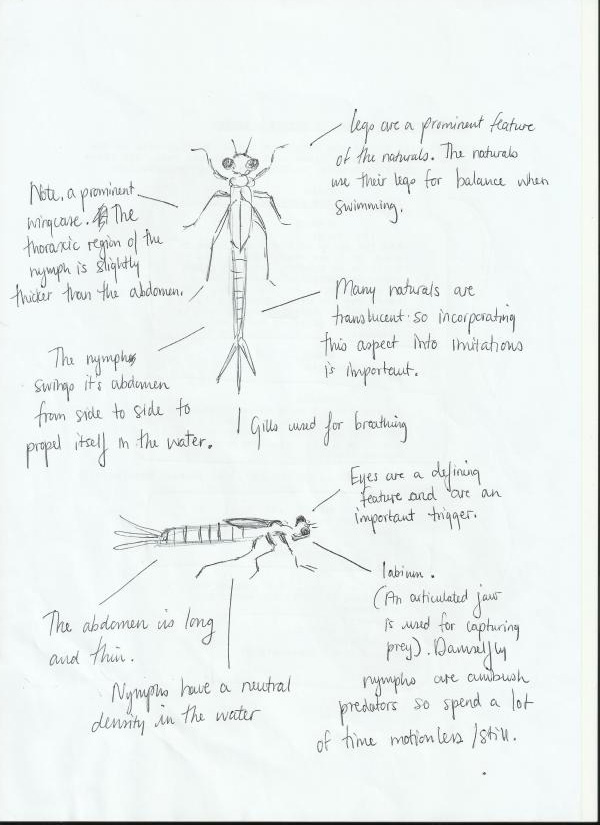 Legs are a prominent feature
of the naturals. The naturals
use their legs for balance when
swimming.
Note, a prominent
wingcase. The
thoraxic region of the
nymph is slightly
thicker than the abdomen.
Many naturals are
translucent so incorporating
this aspect into imitations
is important.
The nymphs
swings it's abdomen
from side to side to
propel itself in the water.
Gills used for breathing
Eyes are a defining
feature and are an
important trigger.
labium.
(An articulated jaw
is used for capturing
prey). Damselfly
nymphs are ambush
predators so spend a lot
of time motionless /still.
The abdomen is long
and thin.
Nymphs have a neutral
density in the water